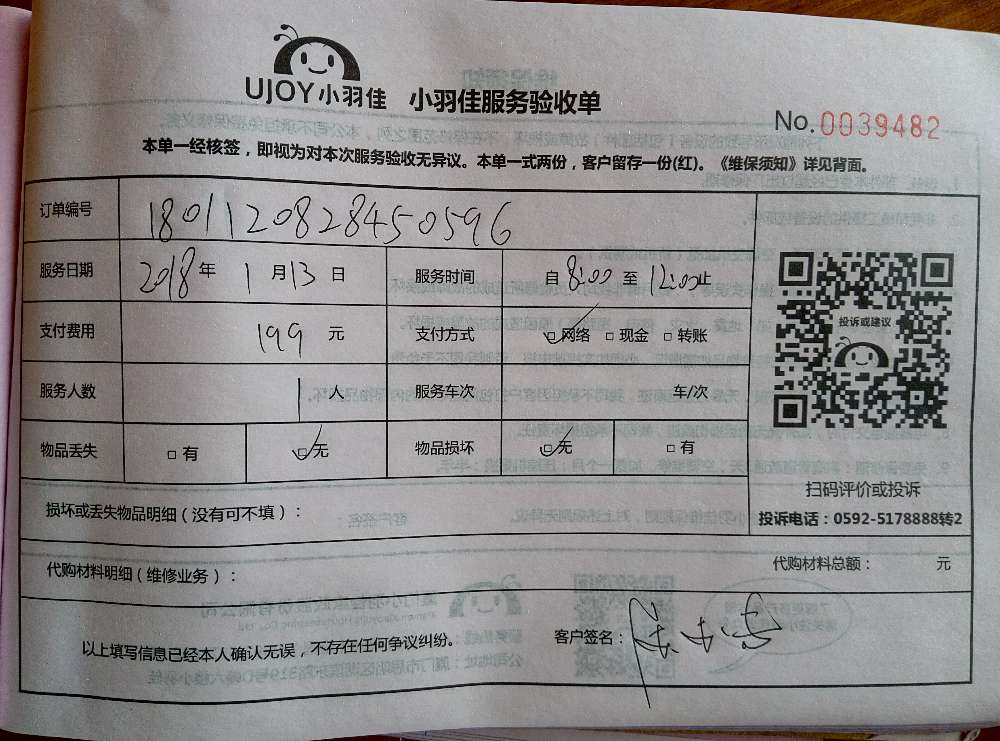 UJOY小羽佳 小羽佳服务验收单
No.0039482
本单一经核签，即视为对本次服务验收无异议。本单一式两份，客户留存一份(红)。《维保须知》详见背面。
订单编号 180112082845059 6
服务日期 2018年1月13日 服务时间 自8:00至12:00止
支付费用 199元 支付方式 ☑网络 □现金 □转账
投诉或建议
服务人数 1人 服务车次 车/次
物品丢失 □有 ☑无 物品损坏 ☑无 □有
扫码评价或投诉
损坏或丢失物品明细（没有可不填）：
投诉电话：0592-5178888转2
代购材料明细（维修业务）： 代购材料总额： 元
以上填写信息已经本人确认无误，不存在任何争议纠纷。 客户签名：